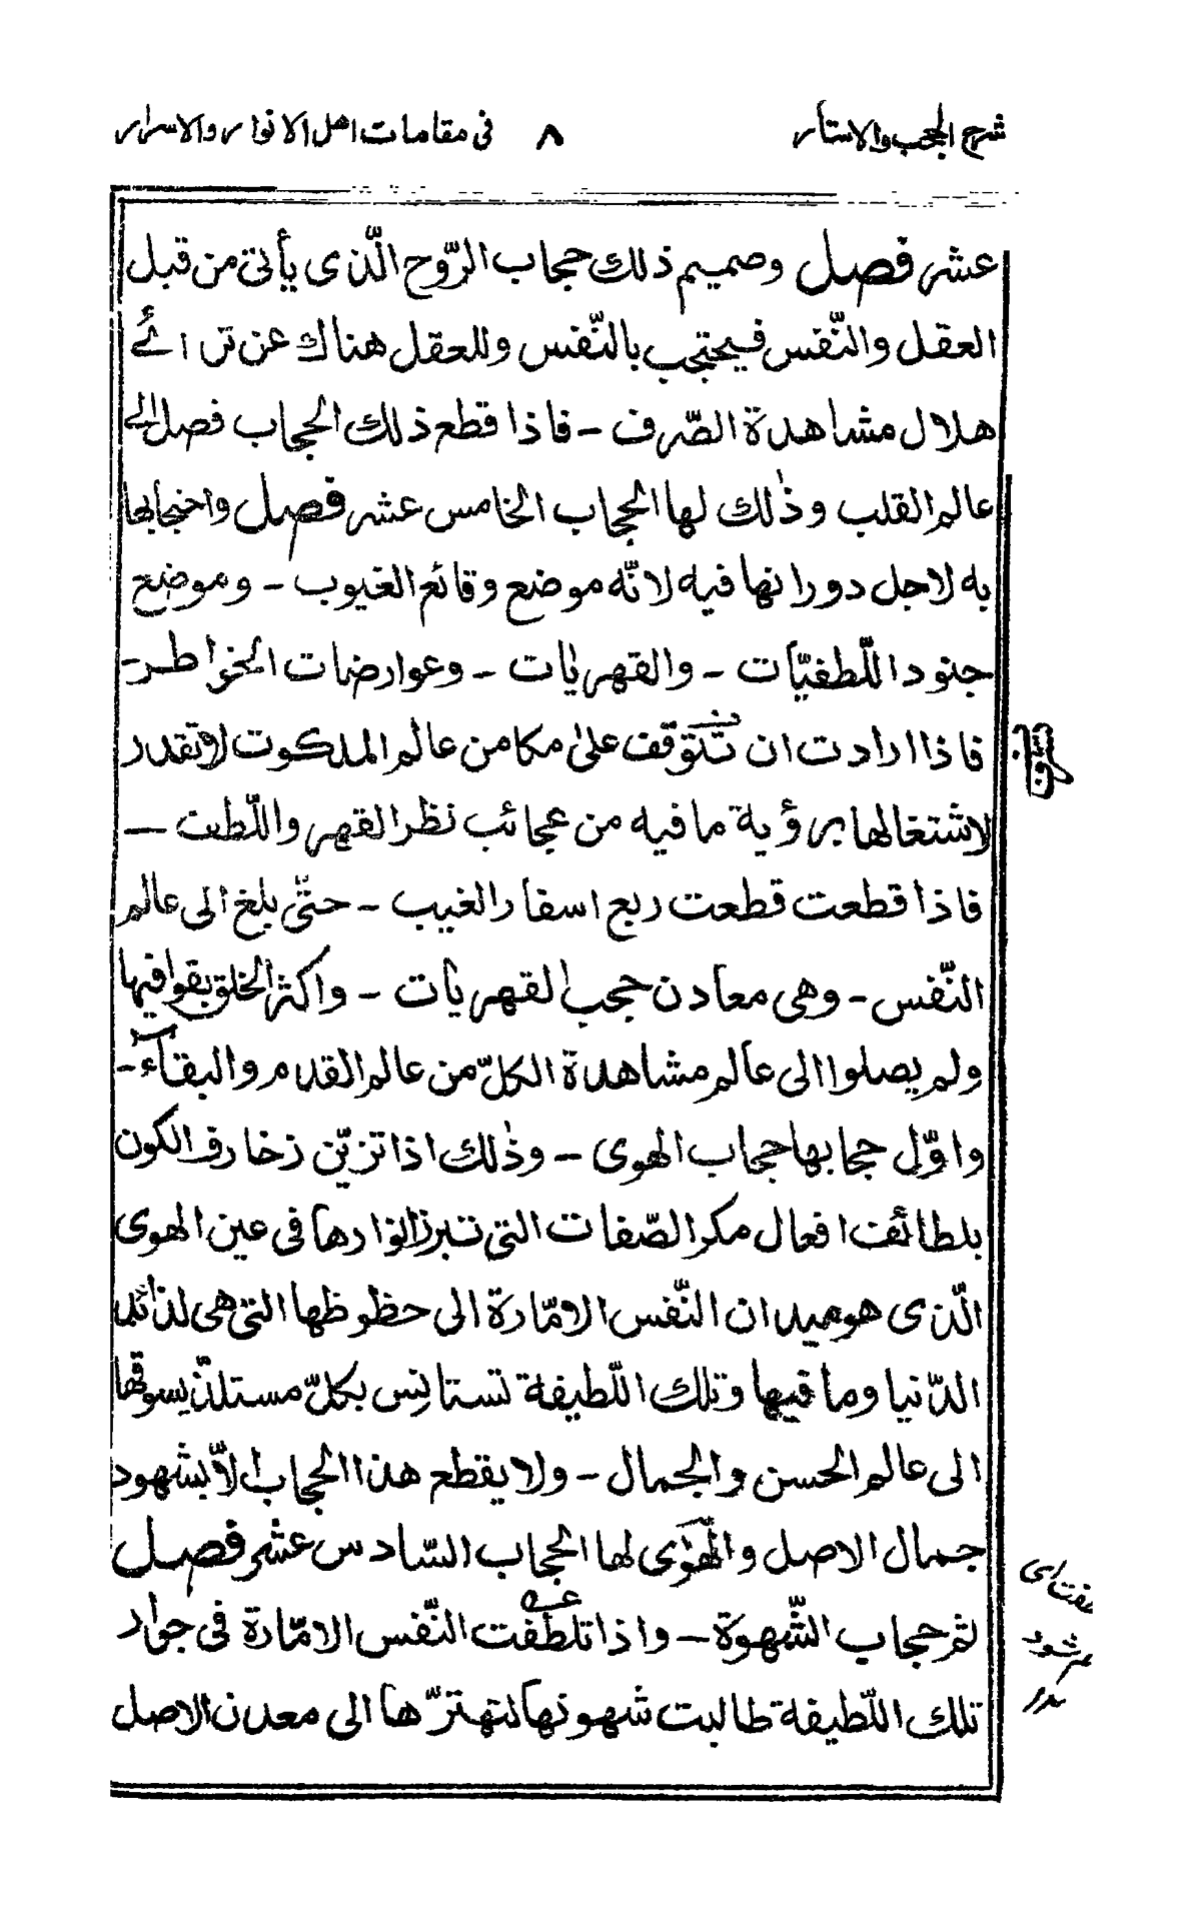 شرح الحجب والاستار ٨ فى مقامات اهل الانوار والاسرار
عشر فصل وصميم ذلك حجاب الرّوح الّذى يأتى من قبل
العقل والنّفس فيحتجب بالنّفس وللعقل هناك عن ترائے
هلال مشاهدة الصّرف - فاذا قطع ذلك الحجاب فصل الى
عالم القلب وذٰلك لها الحجاب الخامس عشر فصل واحتجابها
به لاجل دورانها فيه لانّه موضع وقائع الغيوب - وموضع
جنود اللّطفيّات - والقهريات - وعوارضات الخواطر -
فاذا ارادت ان تتوقف علىٰ مكامن عالم الملكوت لاتقدر
لاشتغالها برؤية ما فيه من عجائب نظر القهر واللّطف —
فاذا قطعت قطعت ربع اسفار الغيب - حتّى بلغ الى عالم
النّفس - وهى معادن حجب القهريات - واكثر الخلق بقوا فيها
ولم يصلوا الى عالم مشاهدة الكلّ من عالم القدم والبقآء -
واوّل حجابها حجاب الهوى - وذٰلك اذا تزيّن زخارف الكون
بلطائف افعال مكر الصّفات التى تبرز انوارها فى عين الهوى
الّذى هو ميدان النّفس الامّارة الى حظوظها التى هى لذائذ
الدّنيا وما فيها وتلك اللّطيفة تستانس بكلّ مستلذّ يسوقها
الى عالم الحسن والجمال - ولا يقطع هذا الحجاب الاّ بشهود
جمال الاصل والهوٰى لها الحجاب السّادس عشر فصل
ثم حجاب الشّهوة - واذا تلطّفت النّفس الامّارة فى جوار
تلك اللّطيفة طالبت شهوتها لتهتزّها الى معدن الاصل